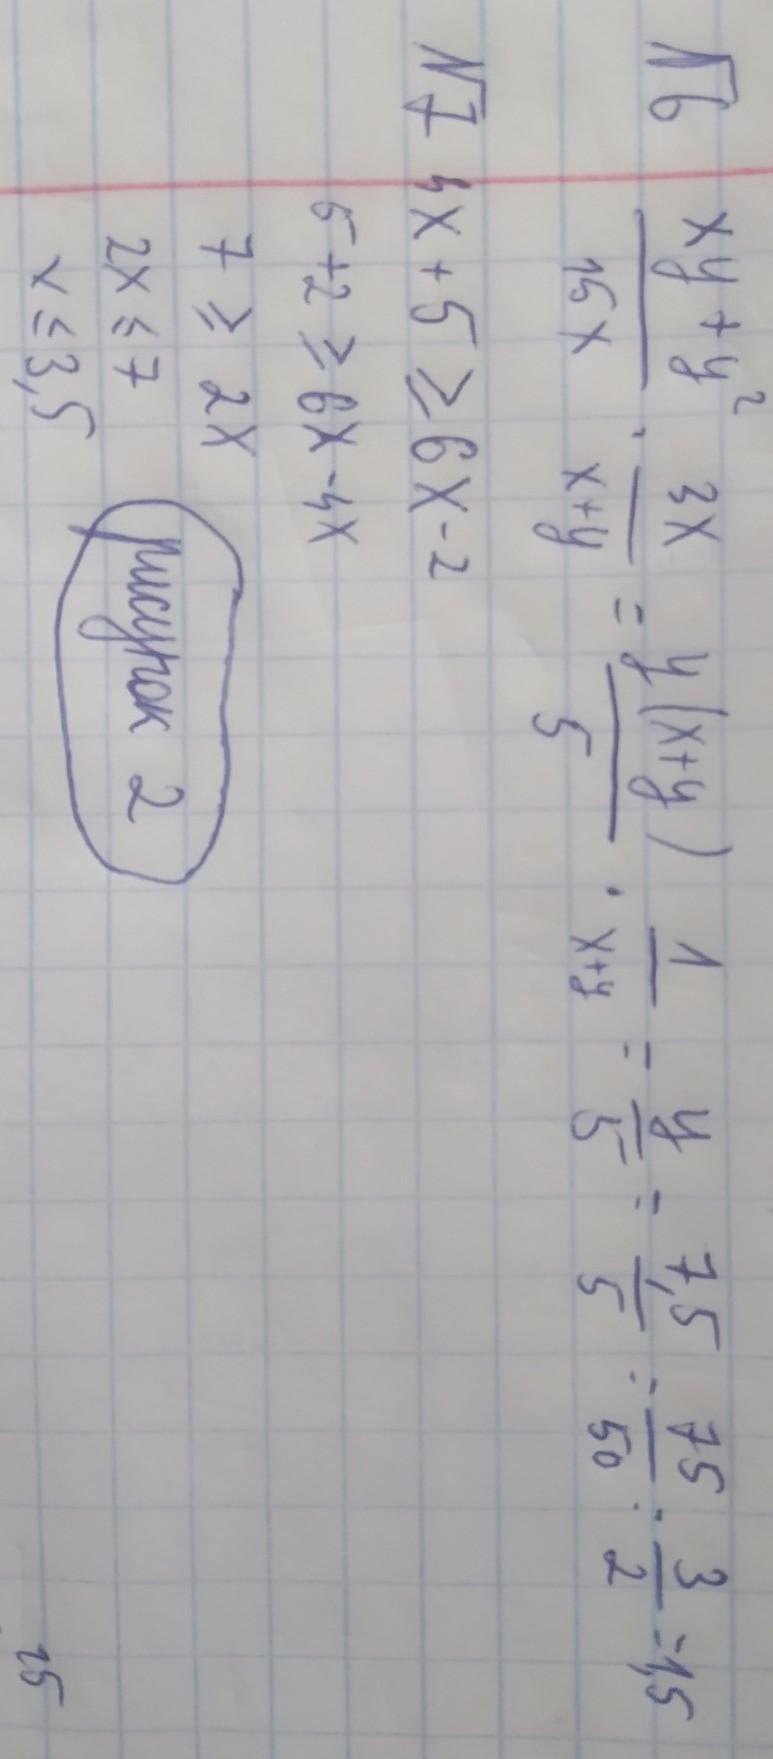 N6 (xy + y²)/(15x) · 3x/(x+y) = y(x+y)/5 · 1/(x+y) = y/5 = 7,5/5 = 75/50 = 3/2 = 1,5
N7 4x + 5 ≥ 6x - 2
5 + 2 ≥ 6x - 4x
7 ≥ 2x
2x ≤ 7
x ≤ 3,5
рисунок 2
15